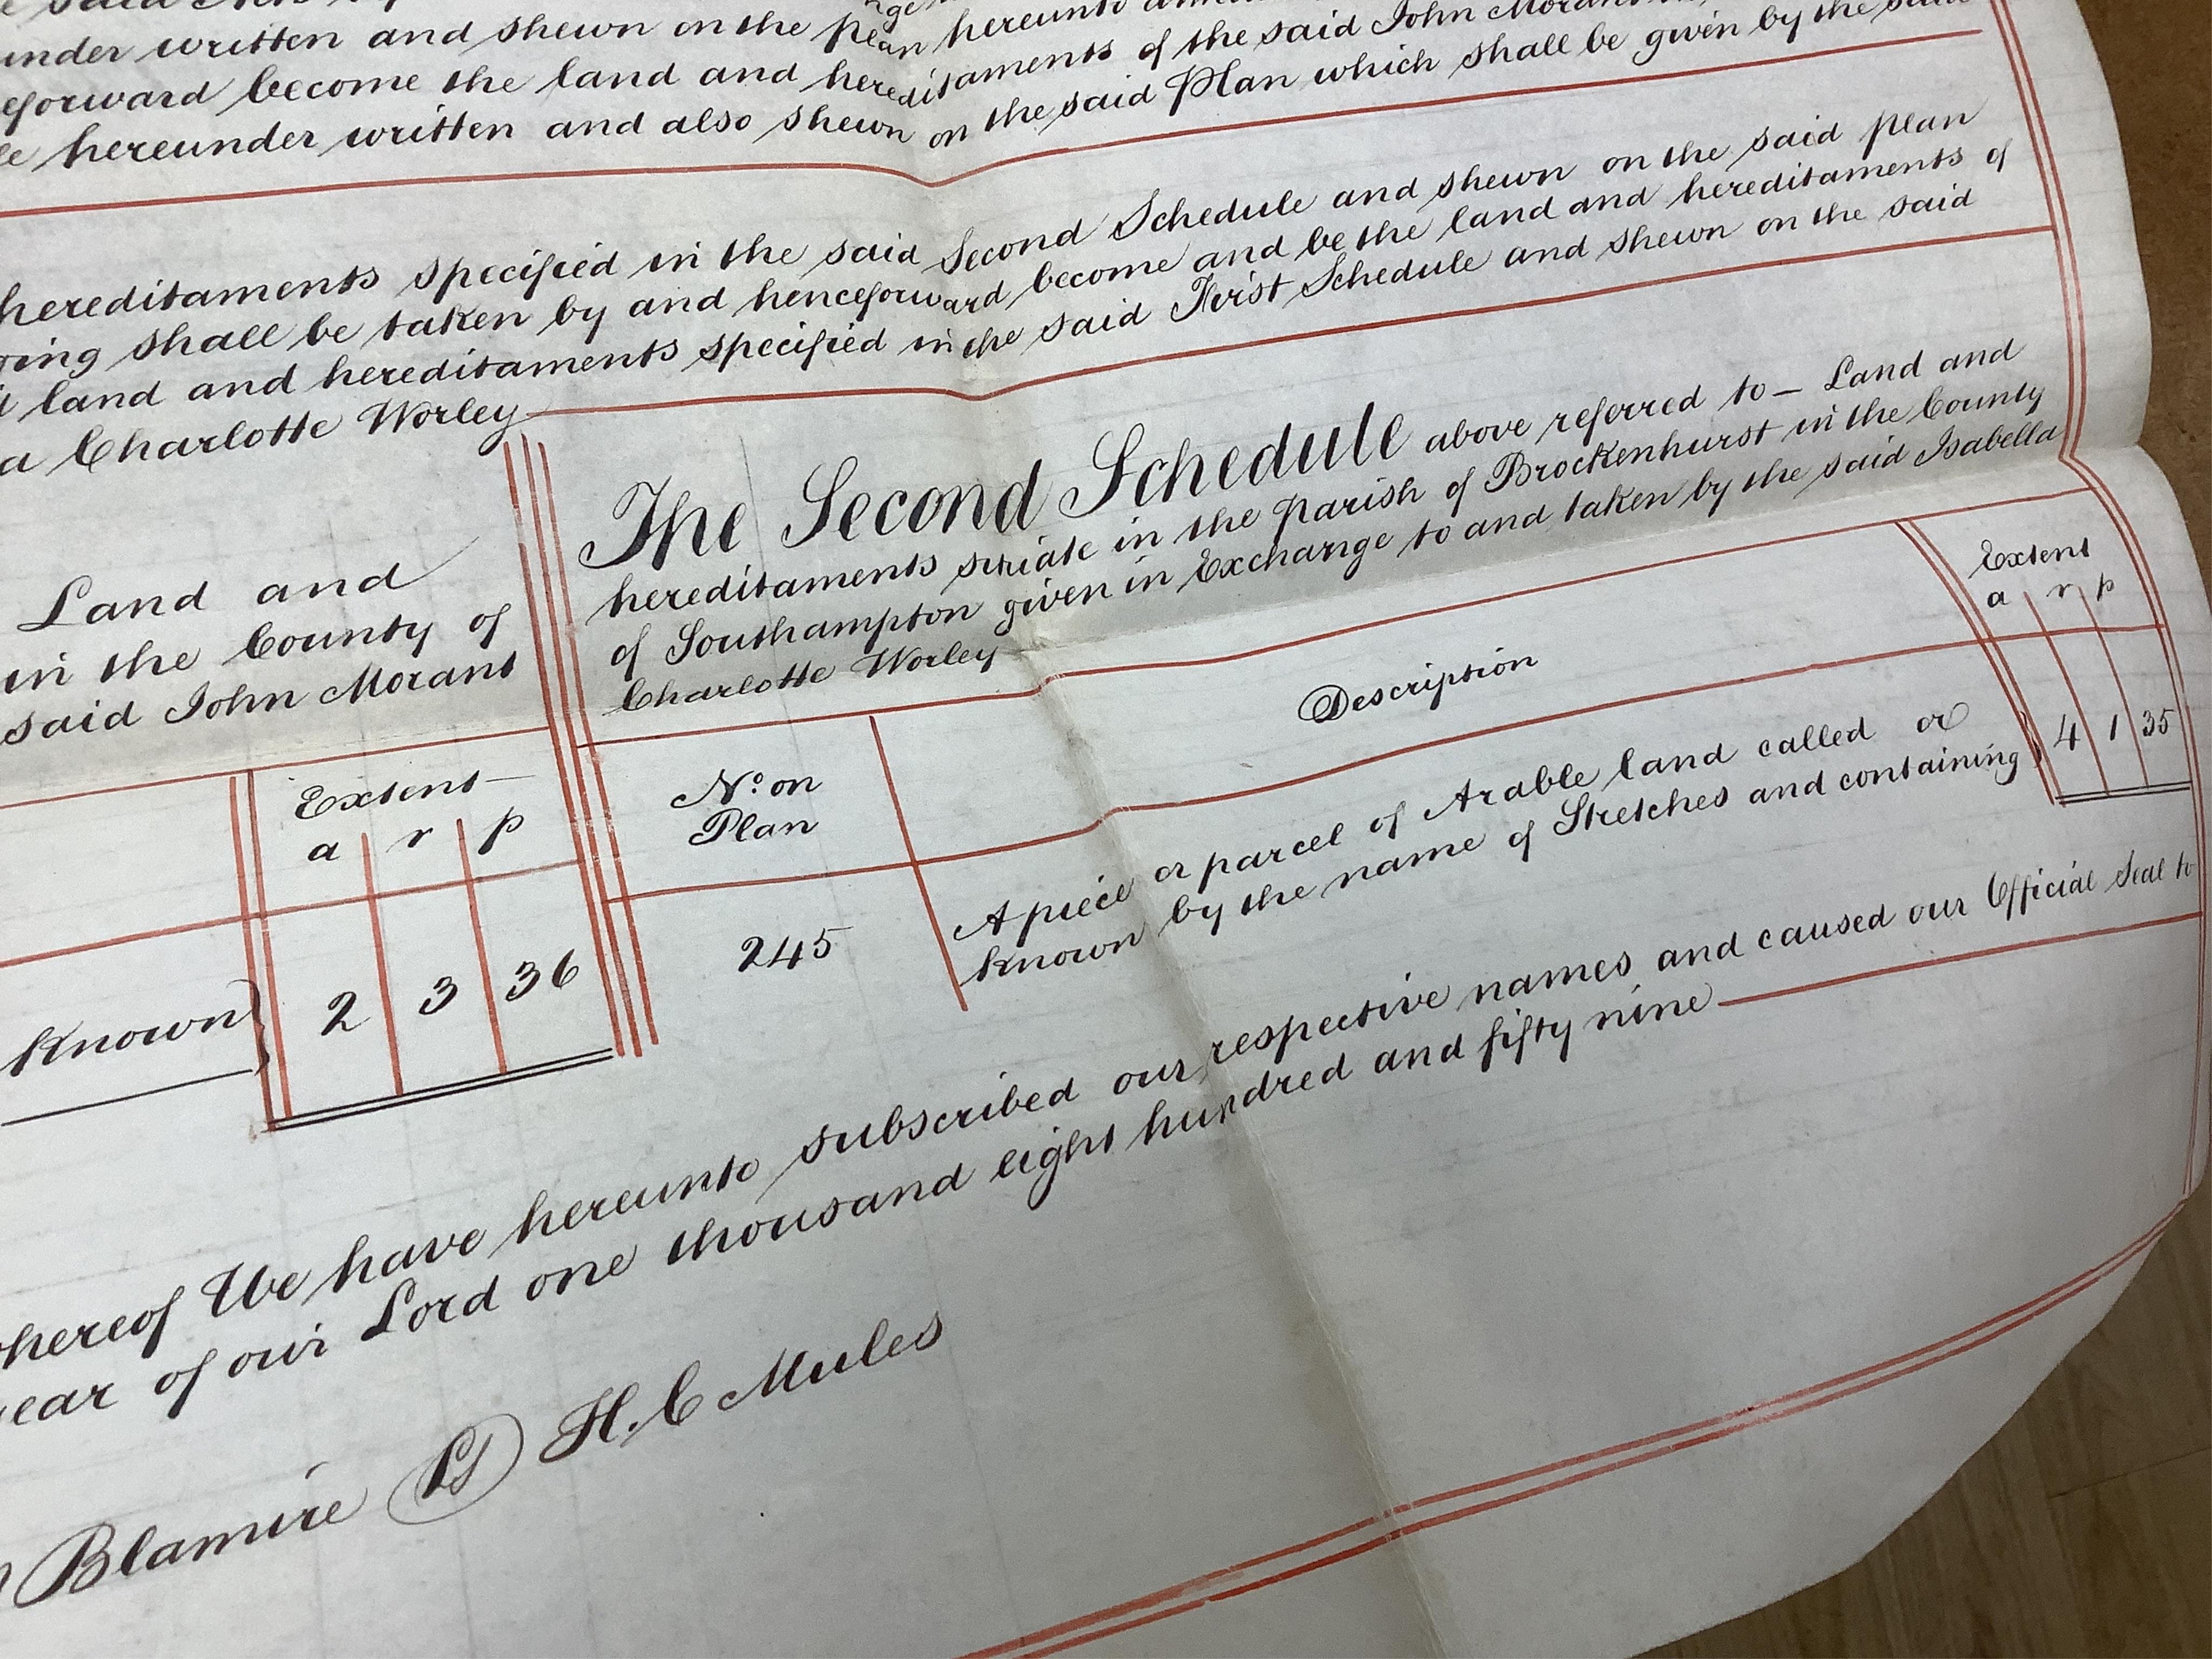 under written and shewn on the plan hereunto
eforward become the land and hereditaments of the said John Morant
hereunder written and also shewn on the said Plan which shall be given by the said
hereditaments specified in the said Second Schedule and shewn on the said plan
shall be taken by and henceforward become and be the land and hereditaments of
land and hereditaments specified in the said First Schedule and shewn on the said
a Charlotte Worley
Land and
in the County of
said John Morant
Extent
a r p
known 2 3 36
The Second Schedule above referred to – Land and
hereditaments situate in the parish of Brockenhurst in the County
of Southampton given in Exchange to and taken by the said Isabella
Charlotte Worley
No. on
Plan
Description
Extent
a r p
245
A piece or parcel of Arable land called or
known by the name of Stretches and containing
4 1 35
hereof We have hereunto subscribed our respective names and caused our Official Seal to
ear of our Lord one thousand eight hundred and fifty nine
Blamire LS H. C Mules